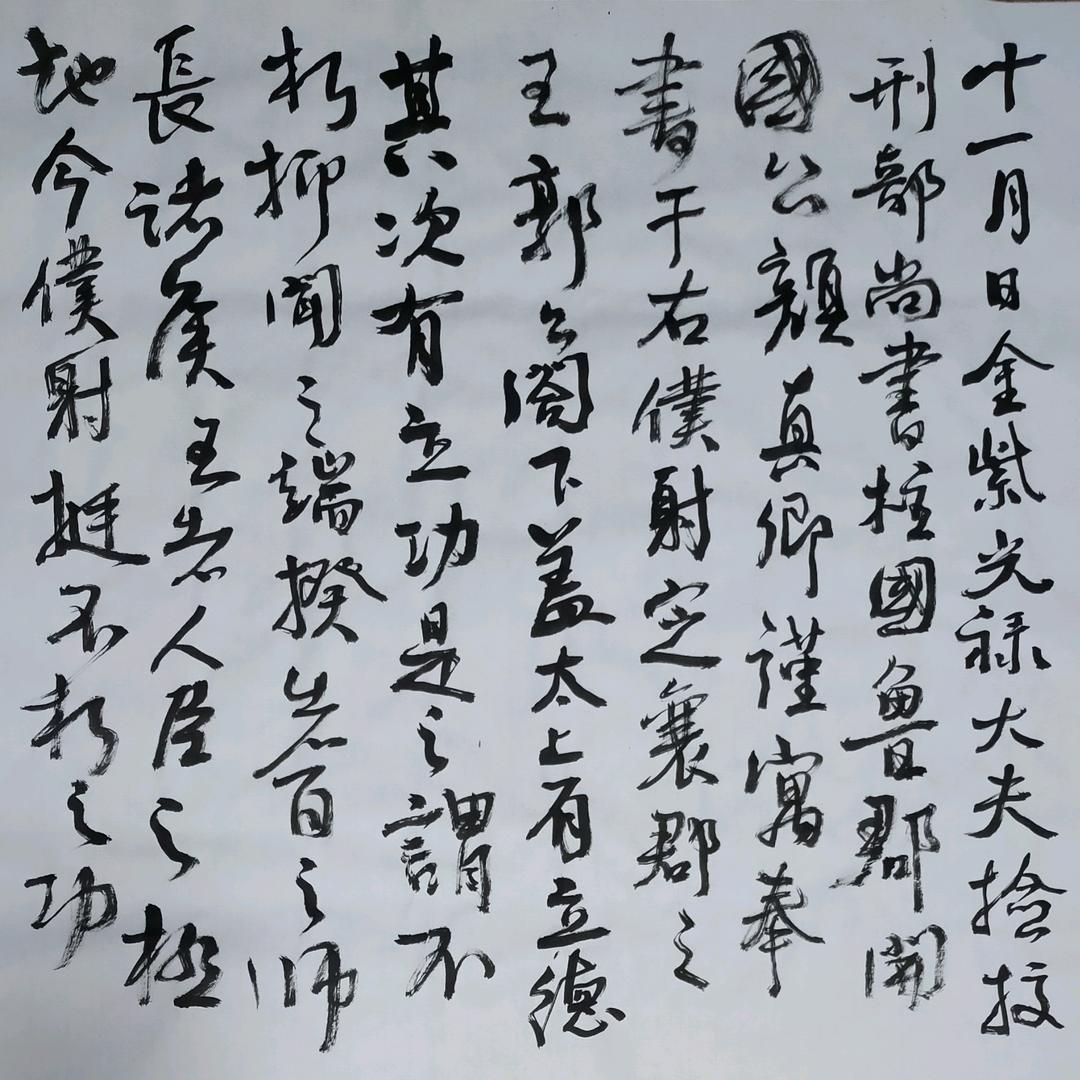 十一月日金紫光祿大夫撿挍
刑部尚書柱國魯郡開
國公顏真卿謹寓奉
書于右僕射定襄郡之
王郭公閤下蓋太上有立德
其次有立功是之謂不
朽抑聞之端揆者百之師
長諸侯王者人臣之極
地今僕射挺不朽之功